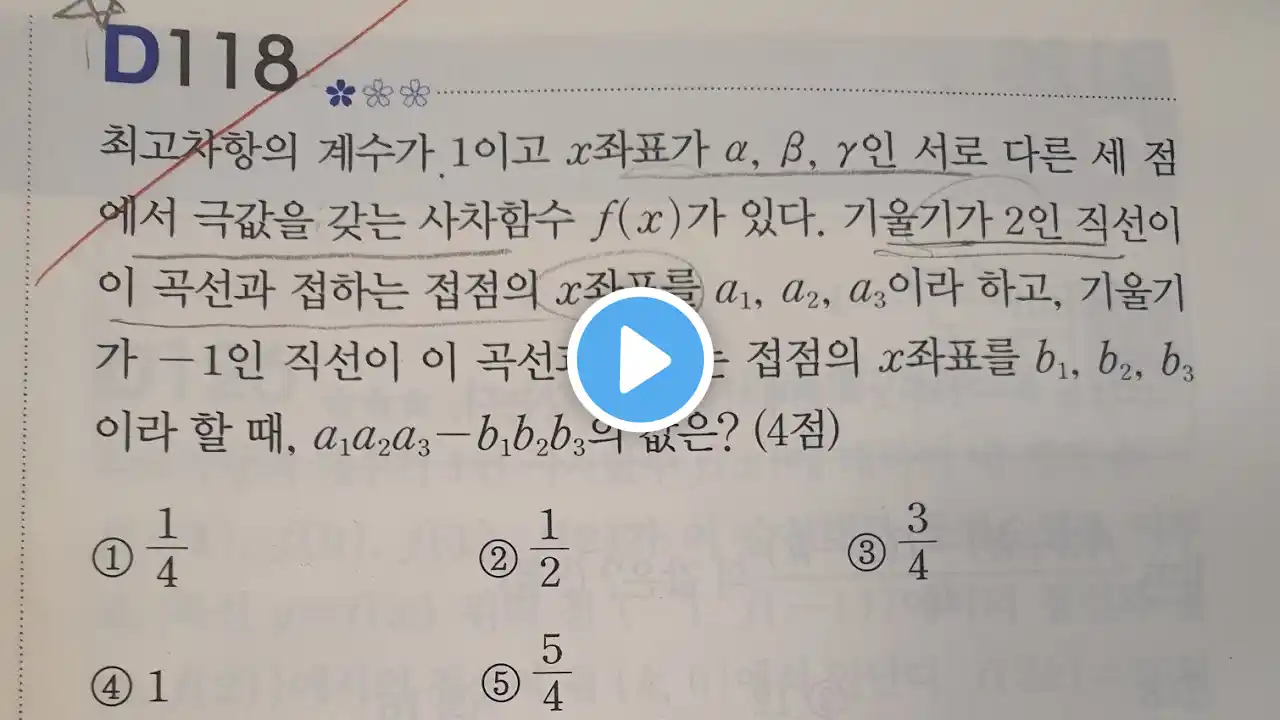 D118
최고차항의 계수가 1이고 x좌표가 α, β, γ인 서로 다른 세 점
에서 극값을 갖는 사차함수 f(x)가 있다. 기울기가 2인 직선이
이 곡선과 접하는 접점의 x좌표를 a₁, a₂, a₃이라 하고, 기울기
가 −1인 직선이 이 곡선 는 접점의 x좌표를 b₁, b₂, b₃
이라 할 때, a₁a₂a₃−b₁b₂b₃의 값은? (4점)
① 1/4 ② 1/2 ③ 3/4
④ 1 ⑤ 5/4